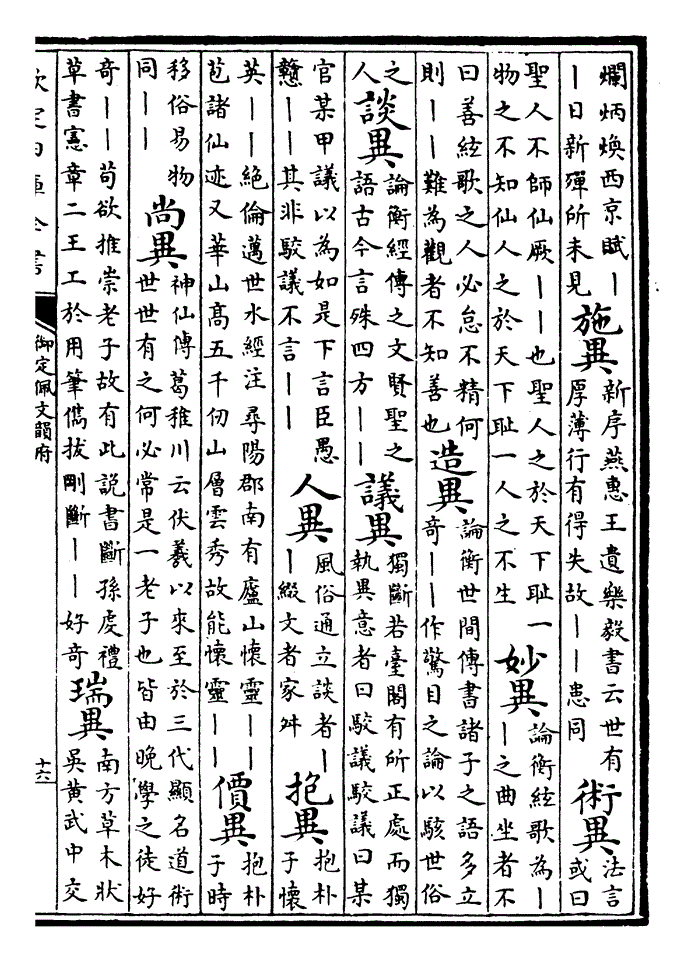 爛炳煥西京賦｜
｜日新殫所未見
施異
新序燕惠王遺樂毅書云世有
厚薄行有得失故｜｜患同
術異
法言
或曰
聖人不師仙厥｜｜也聖人之於天下耻一
物之不知仙人之於天下耻一人之不生
妙異
論衡絃歌為｜
｜之曲坐者不
曰善絃歌之人必怠不精何
則｜｜難為觀者不知善也
造異
論衡世間傳書諸子之語多立
奇｜｜作驚目之論以駭世俗
之
人
談異
論衡經傳之文賢聖之
語古今言殊四方｜｜
議異
獨斷若臺閣有所正處而獨
執異意者曰駁議駁議曰某
官某甲議以為如是下言臣愚
戇｜｜其非駁議不言｜｜
人異
風俗通立談者｜
｜綴文者家舛
抱異
抱朴
子懷
英｜｜絶倫邁世水經注尋陽郡南有廬山懷靈｜｜
苞諸仙迹又華山髙五千仞山層雲秀故能懷靈｜｜
價異
抱朴
子時
移俗易物
同｜｜
尚異
神仙傳葛稚川云伏羲以來至於三代顯名道術
世世有之何必常是一老子也皆由晚學之徒好
奇｜｜苟欲推崇老子故有此説書斷孫虔禮
草書憲章二王工於用筆儁拔剛斷｜｜好奇
瑞異
南方草木狀
吳黄武中交
欽定四庫全書
御定佩文韻府
十六